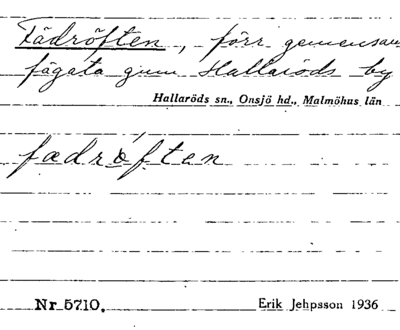 Fädröften, förr gemensam
fägata gnm Hallaröds by
Hallaröds sn., Onsjö hd., Malmöhus län
fædrǿften
Nr 5710. Erik Jehpsson 1936